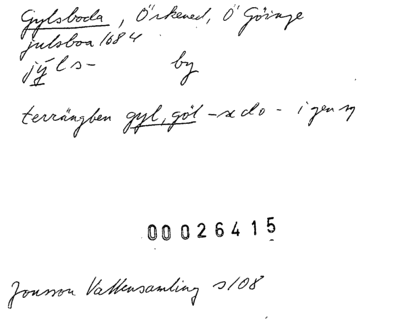 Gylsboda, Örkened, Ö Göinge
julsboa 1684
jyls- by
terrängben gyl, göl - sdo - i gen
00026415
Jonsson Vattensamling s 108